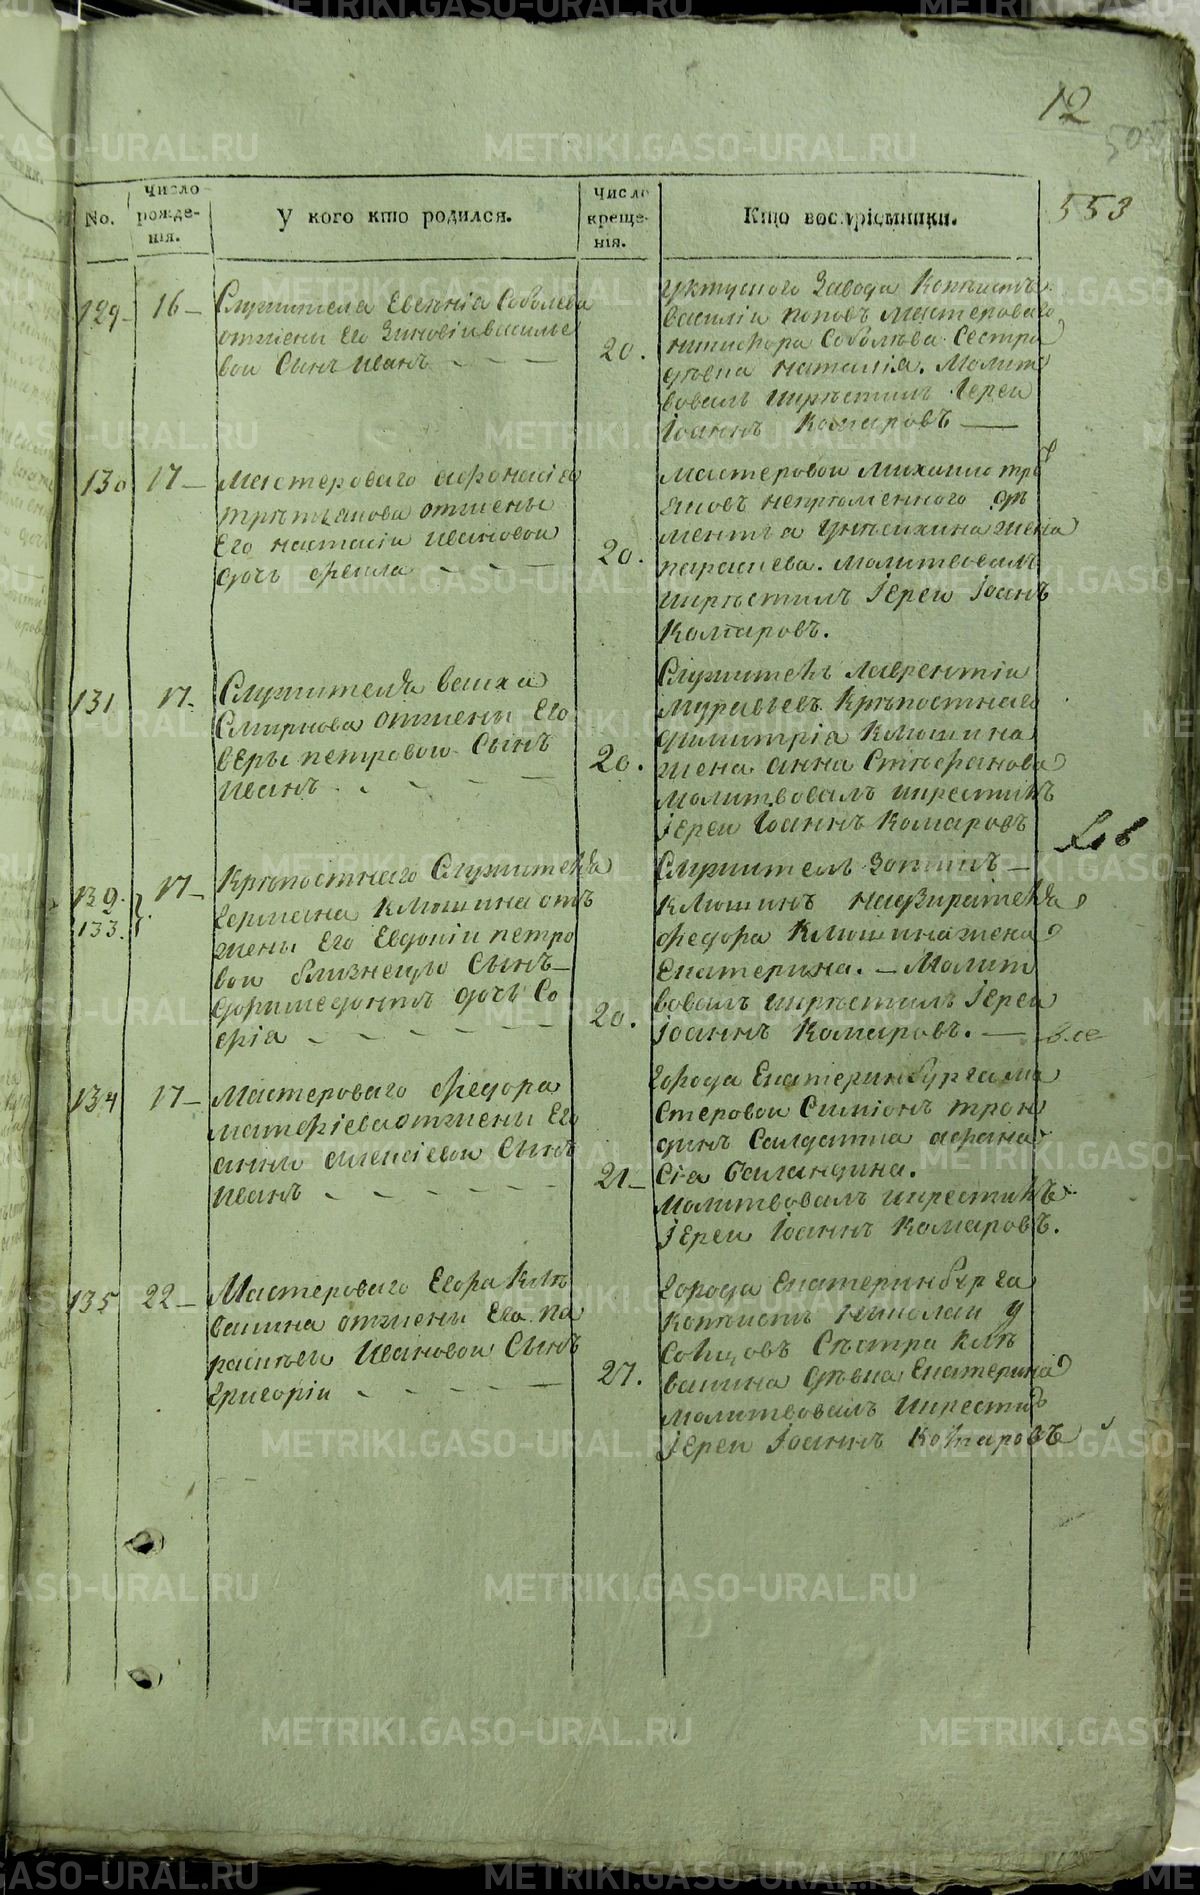 12
50
553
No.
Число рожде-нія.
У кого кто родился.
Число креще-нія.
Кто воспріемники.
129
16
Служителя Евгенія Соболева
отжены Его Зиновіи василье
вои Сынъ иванъ
20.
уктускаго Завода Копѣистъ
василіи поповъ Мастероваго
никифора Соболѣва Сестра
дѣвка наталія. Молит
вовалъ икрѣстилъ Іереи
Іоаннъ Комаровъ
130
17
Мастероваго афонасія
трѣтьякова отжены
Его настасіи ивановои
дочь фекла
20.
мастеровои михаило трѣ
яковъ непрѣменного
жена
параскева. молитвовалъ
икрѣстилъ Іереи Іоанъ
Комаровъ.
131
17.
Служителя
Смирнова отжены Его
вѣры петровои Сынъ
иванъ
20.
Служитель лаврентіи
муравьевъ Крѣпостнаго
димитрія Клюшина
жена анна Стефанова
молитвовалъ икрестилъ
Іереи Іоаннъ Комаровъ
132.
133.
17
Крѣпостнаго Служителя
германа Клюшина отъ
жены Его Евдокіи петро
вои близнецы Сынъ
ферммедонтъ дочь Со
фія
20.
Служитель
Клюшинъ надзирателя
федора Клюшина жена
Екатерина. Молит
вовалъ икрѣстилъ Іереи
Іоаннъ Комаровъ.
134
17
Мастероваго федора
матфіева отжены Его
анны алексіевои Сынъ
иванъ
21
города Екатеринбурга ма
стеровои Симіонъ трон
динъ Салдатка афана
сія баландина.
молитвовалъ икрестилъ
Іереи Іоаннъ Комаровъ.
135
22
Мастероваго Егора Клѣ
вакина отжены Его па
раскѣви Ивановои Сынъ
григоріи
27.
города Екатеринбурга
Копѣистъ николаи у
Сольцовъ Сѣстра клѣ
вакина дѣвка Екатерина
молитвовалъ икрестилъ
Іереи Іоаннъ Комаровъ
METRIKI.GASO-URAL.RU